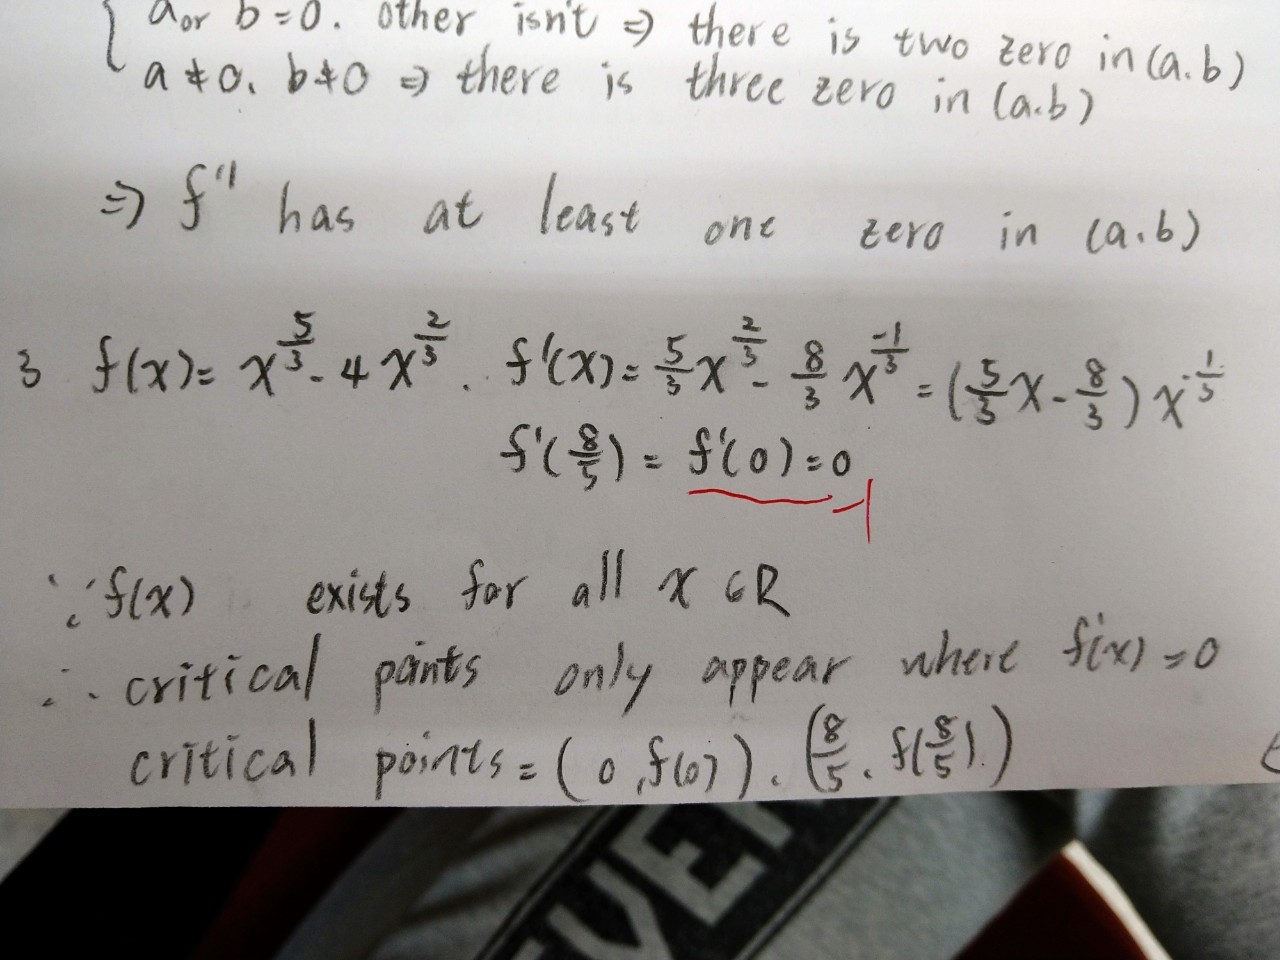 a or b=0. other isn't ⇒ there is two zero in (a.b)
a≠0. b≠0 ⇒ there is three zero in (a.b)
⇒ f'' has at least one zero in (a.b)
3 f(x)= x^{5/3} - 4x^{2/3}. f'(x)= 5/3 x^{2/3} - 8/3 x^{-1/3} = (5/3 x - 8/3) x^{-1/3}
f'(8/5) = f'(0)=0
-1
∵ f(x) exists for all x∈R
∴ critical points only appear where f'(x)=0
critical points = (0, f(0)). (8/5. f(8/5).)
EVER